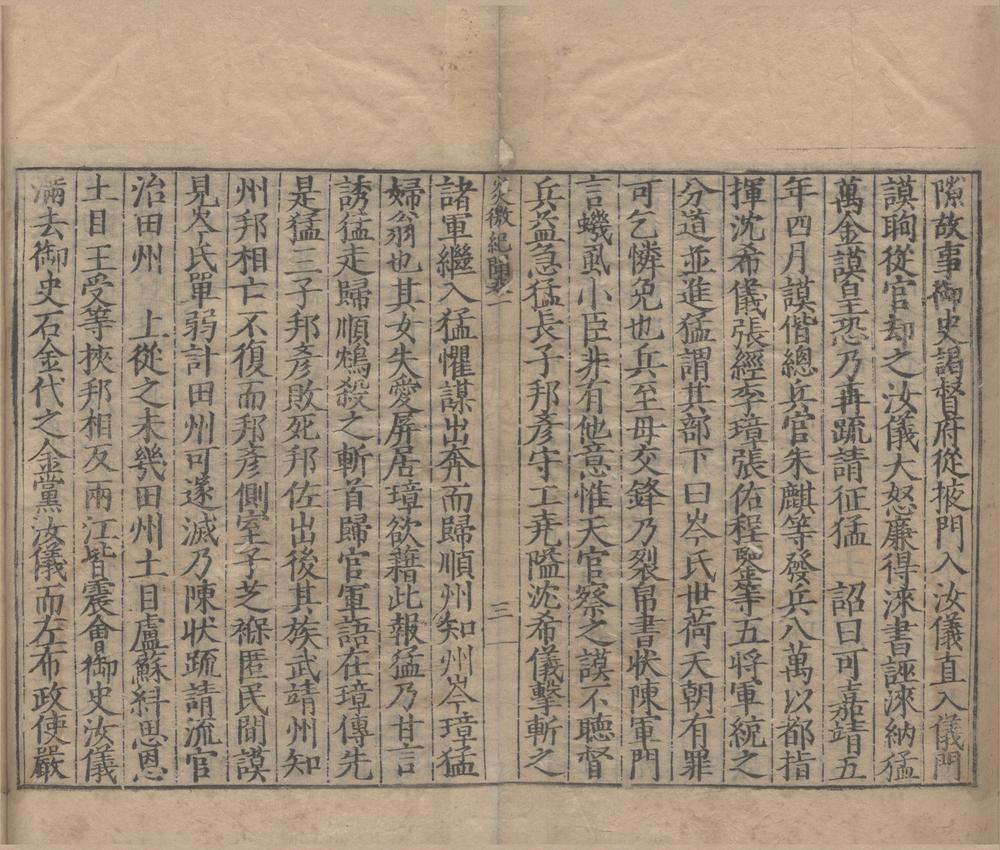 隙故事御史謁督府從掖門入汝儀直入儀門
謨眴從官却之汝儀大怒廉得淶書誣淶納猛
萬金謨皇恐乃再疏請征猛　詔曰可嘉靖五
年四月謨偕總兵官朱麒等發兵八萬以都指
揮沈希儀張經李璋張佑程鑒等五將軍統之
分道並進猛謂其部下曰岑氏世荷天朝有罪
可乞憐免也兵至毋交鋒乃裂帛書狀陳軍門
言蟣虱小臣非有他意惟天官察之謨不聽督
兵益急猛長子邦彥守工堯隘沈希儀擊斬之
炎徼紀聞卷一　三
諸軍繼入猛懼謀出奔而歸順州知州岑璋猛
婦翁也其女失愛屏居璋欲藉此報猛乃甘言
誘猛走歸順鴆殺之斬首歸官軍語在璋傳先
是猛三子邦彥敗死邦佐出後其族武靖州知
州邦相亡不復而邦彥側室子芝褓匿民間謨
見岑氏單弱計田州可遂滅乃陳狀疏請流官
治田州　上從之未幾田州土目盧蘇糾思恩
土目王受等挾邦相反兩江皆震會御史汝儀
滿去御史石金代之金黨汝儀而左布政使嚴